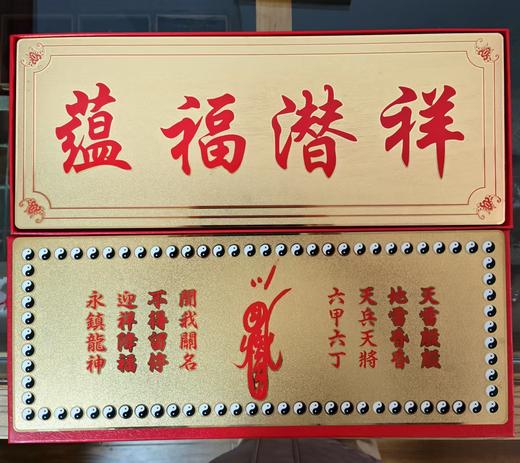 藴福潜祥
天雷殷殷
地雷昏昏
天兵天將
六甲六丁
聞我關名
不得留停
迎祥降福
永鎮龍神